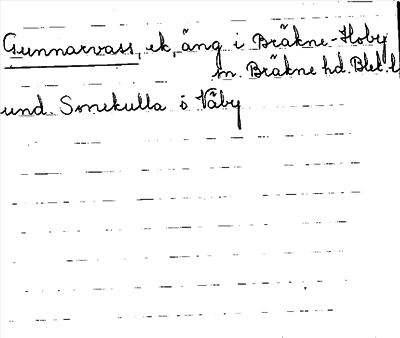 Gunnarvass, ek, äng i Bräkne-Hoby
sn. Bräkne hd. Blek. l.
und. Sonekulla ö Väby